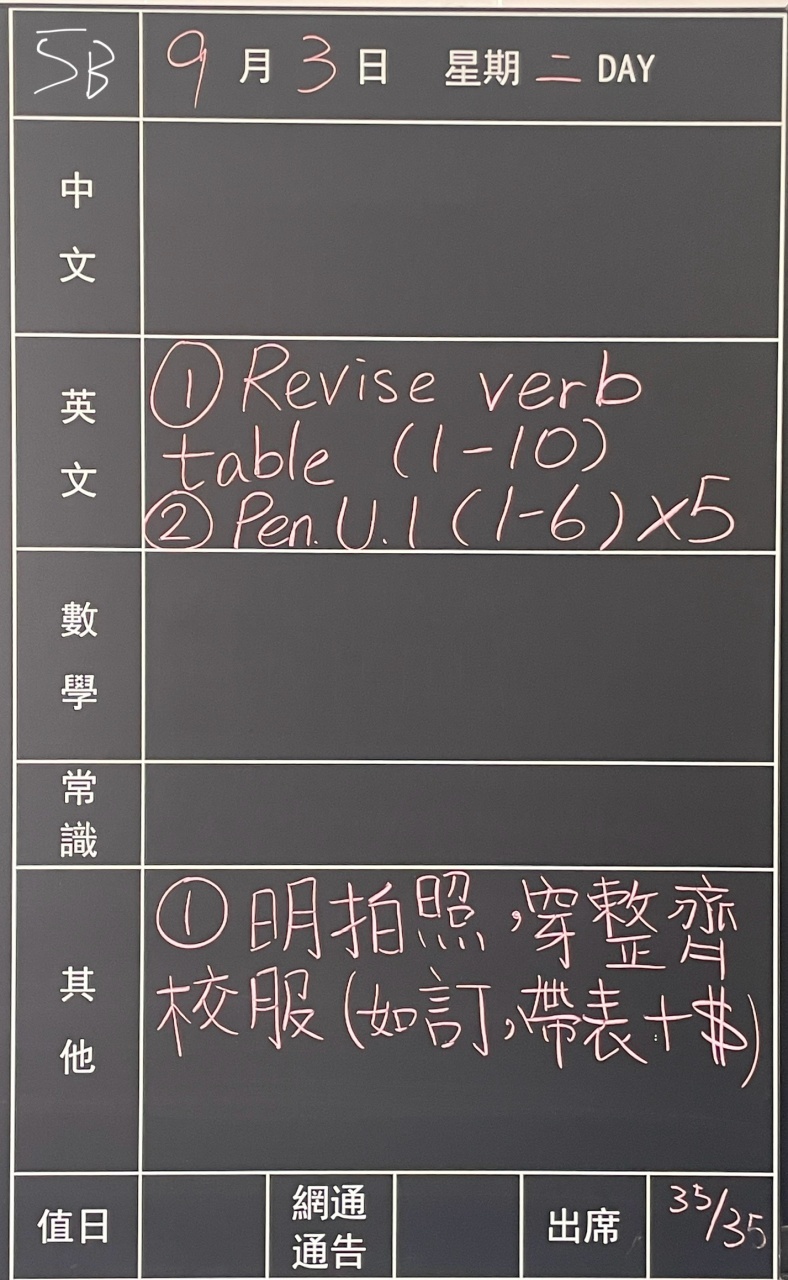 5B 9月3日 星期二 DAY
中文
英文
① Revise verb
table (1-10)
② Pen. U.1 (1-6) ×5
數學
常識
其他
① 明拍照,穿整齊
校服(如訂,帶表+$)
值日
網通
通告
出席
35/35